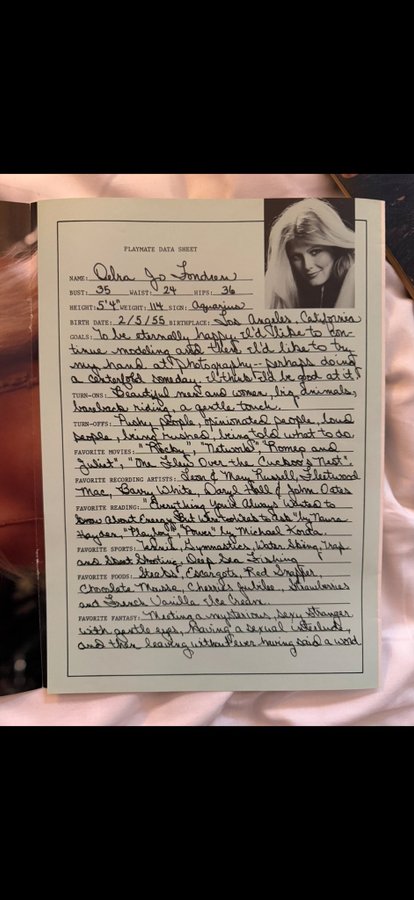 PLAYMATE DATA SHEET
NAME: Debra Jo Fondren
BUST: 35 WAIST: 24 HIPS: 36
HEIGHT: 5'4" WEIGHT: 114 SIGN: Aquarius
BIRTH DATE: 2/5/55 BIRTHPLACE: Los Angeles, California
GOALS: To be eternally happy. I'd like to con-
tinue modeling and then I'd like to try
my hand at photography -- perhaps doing
a centerfold someday. I think I'd be good at it!
TURN-ONS: Beautiful men and women, big animals,
bareback riding, a gentle touch.
TURN-OFFS: Pushy people, opinionated people, loud
people, being rushed, being told what to do
FAVORITE MOVIES: "Rocky" "Network" "Romeo and
Juliet", "One Flew Over the Cuckoo's Nest"
FAVORITE RECORDING ARTISTS: Leon & Mary Russell, Fleetwood
Mac, Barry White, Daryl Hall & John Oates
FAVORITE READING: "Everything You've Always Wanted to
Know About Energy But Were too Weak to Ask" by Naura
Hayden, "Playboy" "Power" by Michael Korda
FAVORITE SPORTS: Tennis, Gymnastics, Water Skiing, Trap
and Skeet Shooting, Deep Sea Fishing
FAVORITE FOODS: Steaks, Escargots, Red Snapper,
Chocolate Mousse, Cherries Jubilee, Strawberries
and French Vanilla Ice Cream
FAVORITE FANTASY: Meeting a mysterious, sexy stranger
with gentle eyes, having a sexual interlude,
and then leaving without ever having said a word